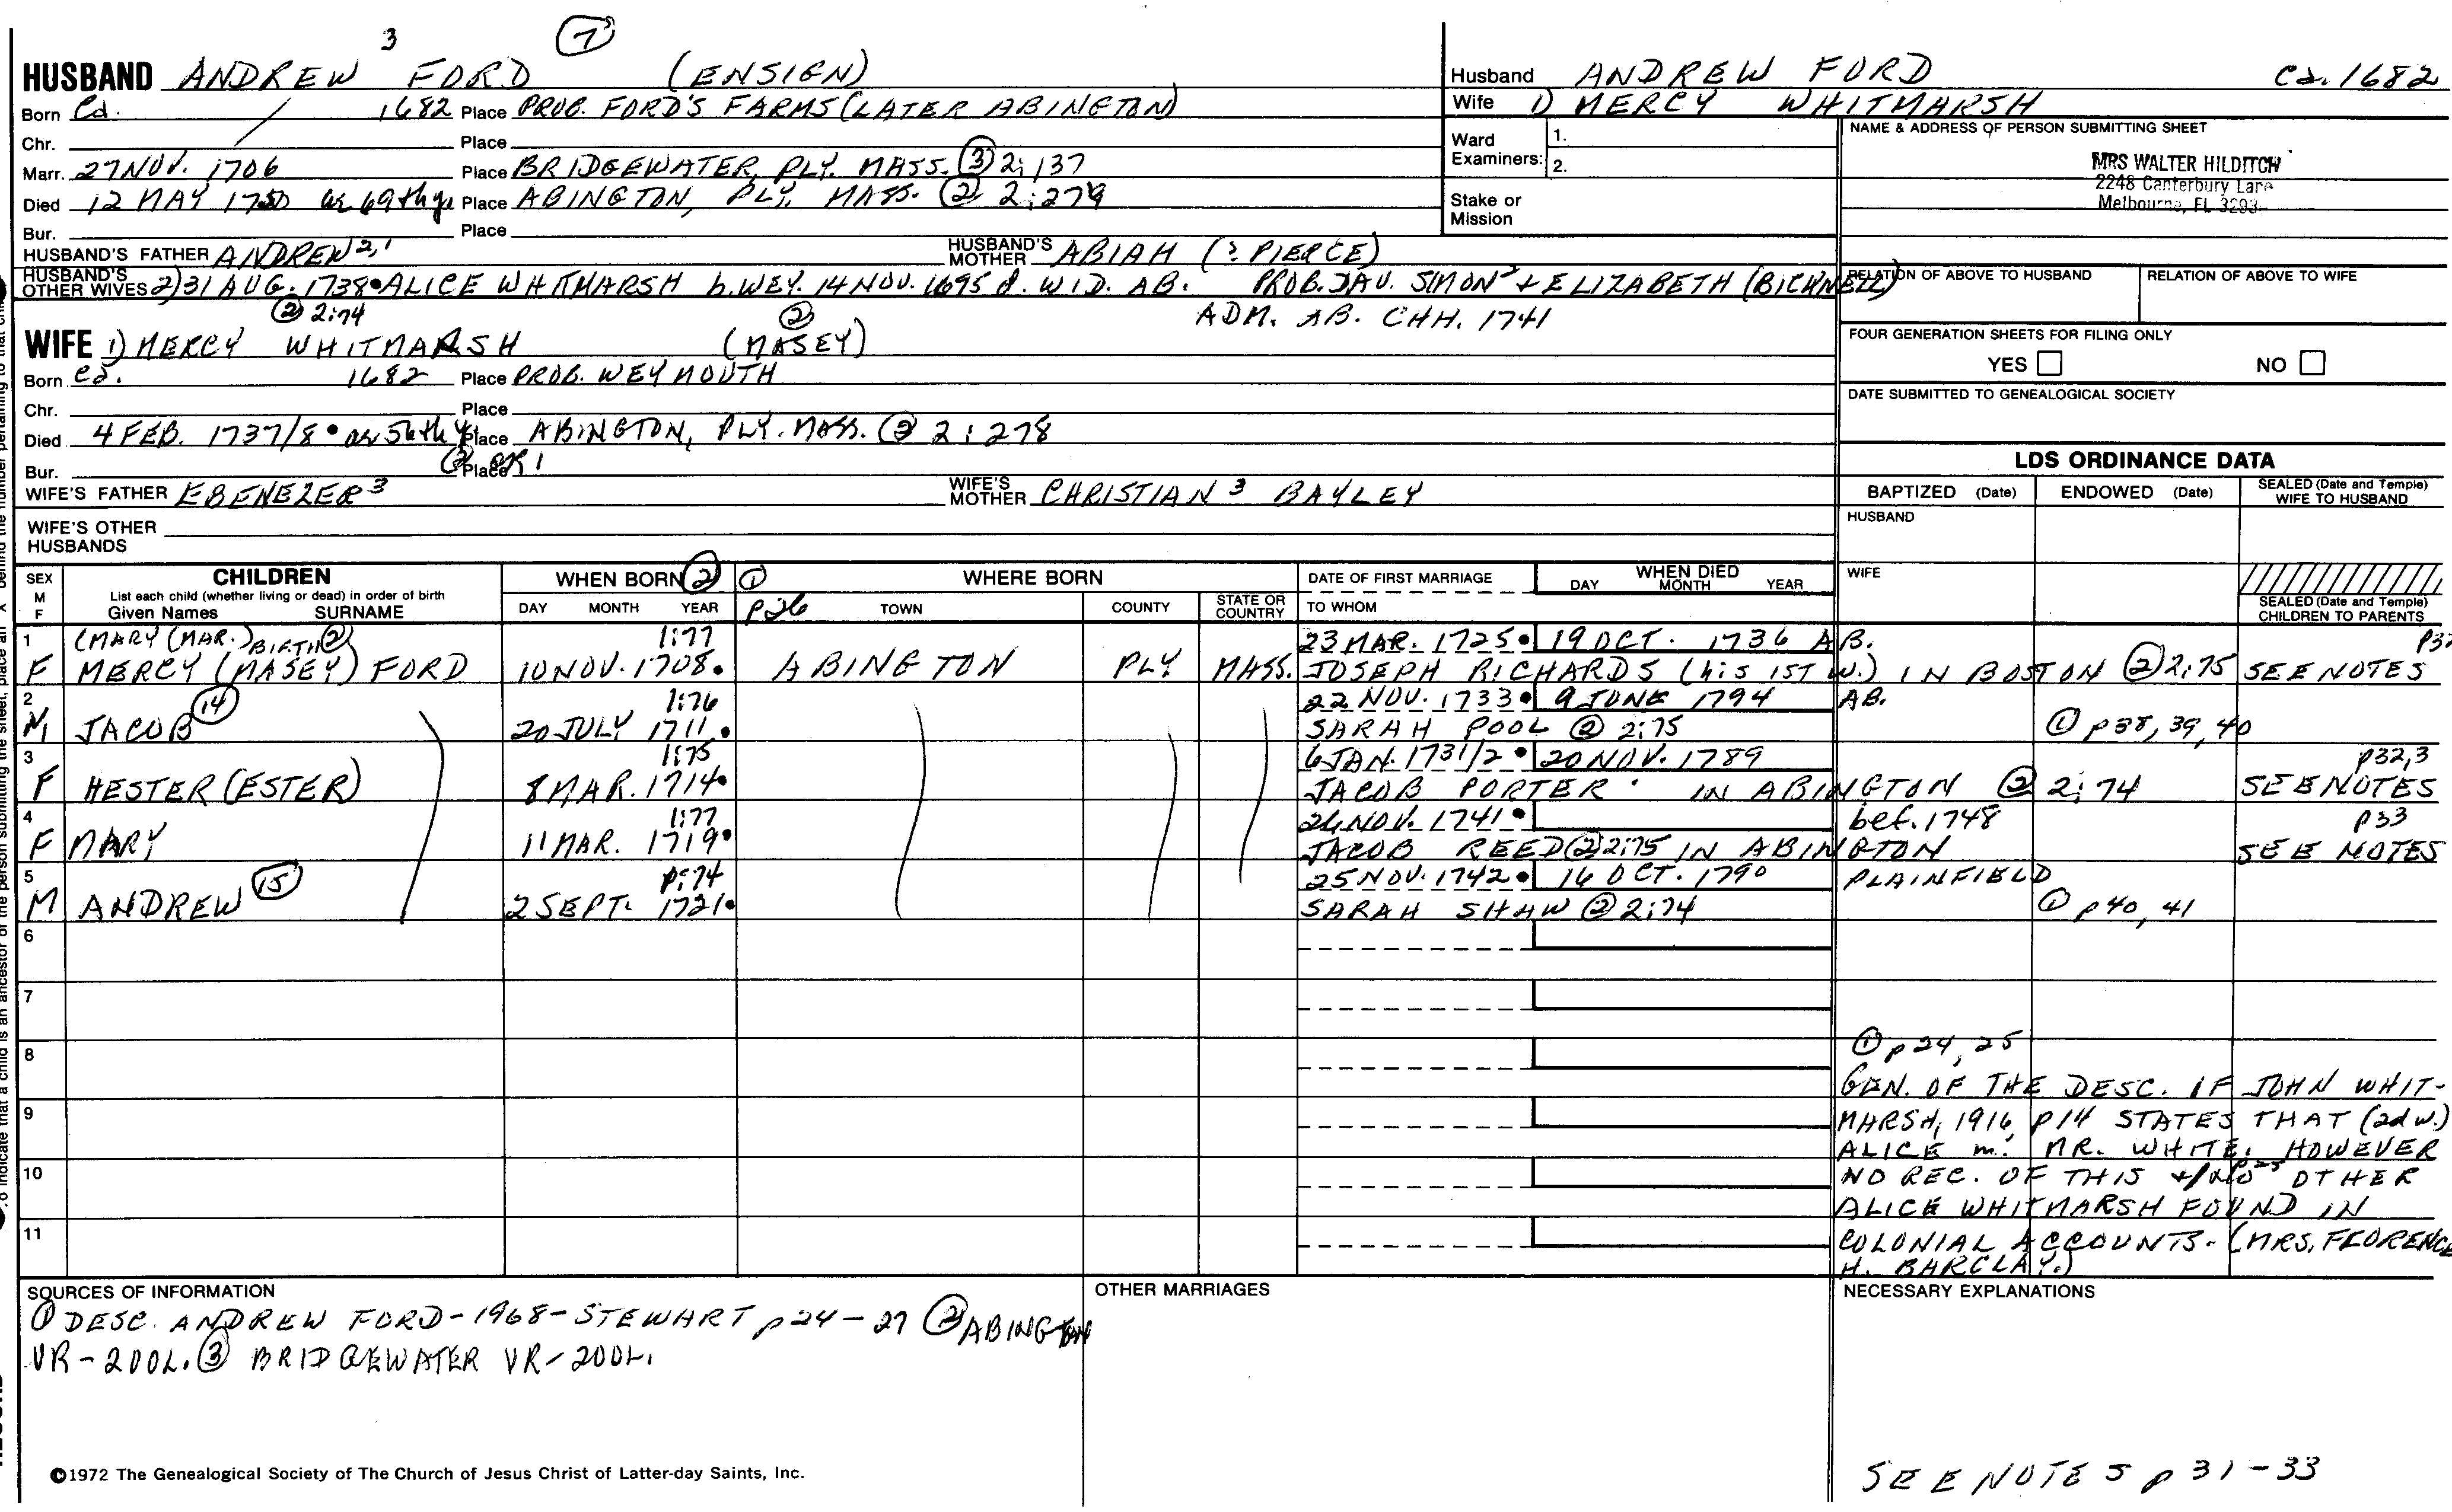 3 7
HUSBAND ANDREW FORD (ENSIGN)
Born Ca. / 1682 Place PROB. FORD'S FARMS (LATER ABINGTON)
Chr. Place
Marr. 27 NOV. 1706 Place BRIDGEWATER, PLY. MASS. ③ 2:137
Died 12 MAY 1750 as 69th yr Place ABINGTON, PLY. MASS. ② 2:279
Bur. Place
HUSBAND'S FATHER ANDREW 2,1 HUSBAND'S MOTHER ABIAH (? PIERCE)
HUSBAND'S OTHER WIVES 2) 31 AUG. 1738 • ALICE WHITMARSH b. WEY. 14 NOV. 1695 d. WID. AB. PROB. DAU. SIMON 2 + ELIZABETH (BICKNELL)
② 2:74 ② ADM. AB. CHH. 1741
WIFE 1) MERCY WHITMARSH (MASEY)
Born Ca. 1682 Place PROB. WEYMOUTH
Chr. Place
Died 4 FEB. 1737/8 • as 56th yr Place ABINGTON, PLY. MASS. ② 2:278
Bur. Place ② CR1
WIFE'S FATHER EBENEZER 3 WIFE'S MOTHER CHRISTIAN 3 BAYLEY
WIFE'S OTHER HUSBANDS
Husband ANDREW FORD Ca. 1682
Wife 1) MERCY WHITMARSH
Ward Examiners: 1.
2.
Stake or Mission
NAME & ADDRESS OF PERSON SUBMITTING SHEET
MRS WALTER HILDITCH
2248 Canterbury Lane
Melbourne, FL 3293
RELATION OF ABOVE TO HUSBAND RELATION OF ABOVE TO WIFE
FOUR GENERATION SHEETS FOR FILING ONLY
YES NO
DATE SUBMITTED TO GENEALOGICAL SOCIETY
LDS ORDINANCE DATA
BAPTIZED (Date) ENDOWED (Date) SEALED (Date and Temple) WIFE TO HUSBAND
HUSBAND
WIFE
SEALED (Date and Temple) CHILDREN TO PARENTS
SEX M F CHILDREN WHEN BORN ② ① WHERE BORN DATE OF FIRST MARRIAGE WHEN DIED
List each child (whether living or dead) in order of birth
Given Names SURNAME DAY MONTH YEAR p26 TOWN COUNTY STATE OR COUNTRY TO WHOM DAY MONTH YEAR
1 (MARY (MAR.) BIRTH ②) 1:77 23 MAR. 1725 • 19 OCT. 1736 AB. p32
F MERCY (MASEY) FORD 10 NOV. 1708 • ABINGTON PLY MASS. JOSEPH RICHARDS (his 1ST W.) IN BOSTON ② 2:75 SEE NOTES
2 14 1:76 22 NOV. 1733 • 9 JUNE 1794 AB.
M JACOB 20 JULY 1711 • SARAH POOL ② 2:75 ① p38, 39, 40
3 1:75 6 JAN. 1731/2 • 20 NOV. 1789 p32,3
F HESTER (ESTER) 8 MAR. 1714 • JACOB PORTER IN ABINGTON ② 2:74 SEE NOTES
4 1:77 26 NOV. 1741 • bef. 1748 p33
F MARY 11 MAR. 1719 • JACOB REED ② 2:75 IN ABINGTON SEE NOTES
5 15 p:74 25 NOV. 1742 • 16 OCT. 1790 PLAINFIELD
M ANDREW 2 SEPT. 1721 • SARAH SHAW ② 2:74 ① p40, 41
6
7
8
9
10
11
① p 24, 25
GEN. OF THE DESC. OF JOHN WHIT-
MARSH, 1916, p14 STATES THAT (2d w.)
ALICE m. MR. WHITE. HOWEVER
NO REC. OF THIS OTHER
ALICE WHITMARSH FOUND IN
COLONIAL ACCOUNTS - (MRS. FLORENCE
H. BARCLAY.)
SOURCES OF INFORMATION OTHER MARRIAGES NECESSARY EXPLANATIONS
① DESC. ANDREW FORD - 1968 - STEWART p 24 - 27 ② ABINGTON
VR - 200L. ③ BRIDGEWATER VR - 200L.
©1972 The Genealogical Society of The Church of Jesus Christ of Latter-day Saints, Inc.
SEE NOTES p 31 - 33